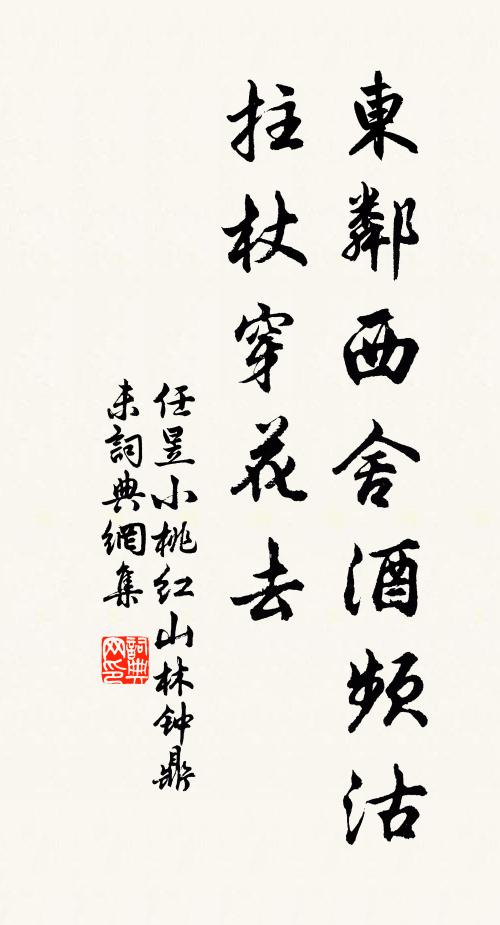 東鄰西舍酒頻沽
拄杖穿花去
任昱小桃紅山林钟鼎
未詞典網集
詞典網印